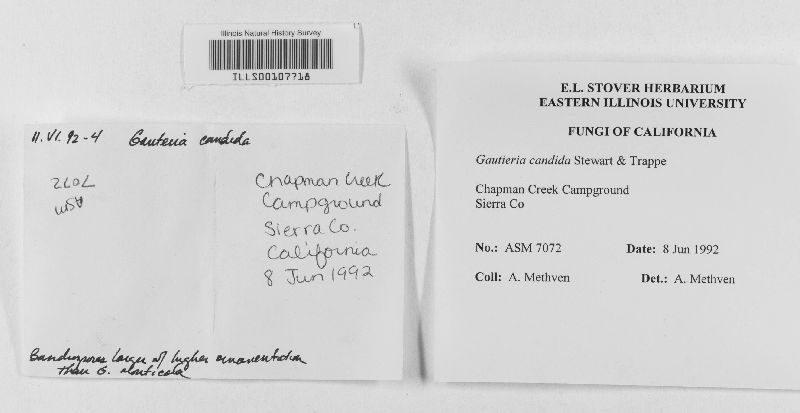 Illinois Natural History Survey
ILLS00107718
11.VI.92-4 Gauteria candida
7072
ASM
Chapman Creek
Campground
Sierra Co.
California
8 Jun 1992
larger w/ higher ornamentation
than G. monticola
E.L. STOVER HERBARIUM
EASTERN ILLINOIS UNIVERSITY
FUNGI OF CALIFORNIA
Gautieria candida Stewart & Trappe
Chapman Creek Campground
Sierra Co
No.: ASM 7072 Date: 8 Jun 1992
Coll: A. Methven Det.: A. Methven